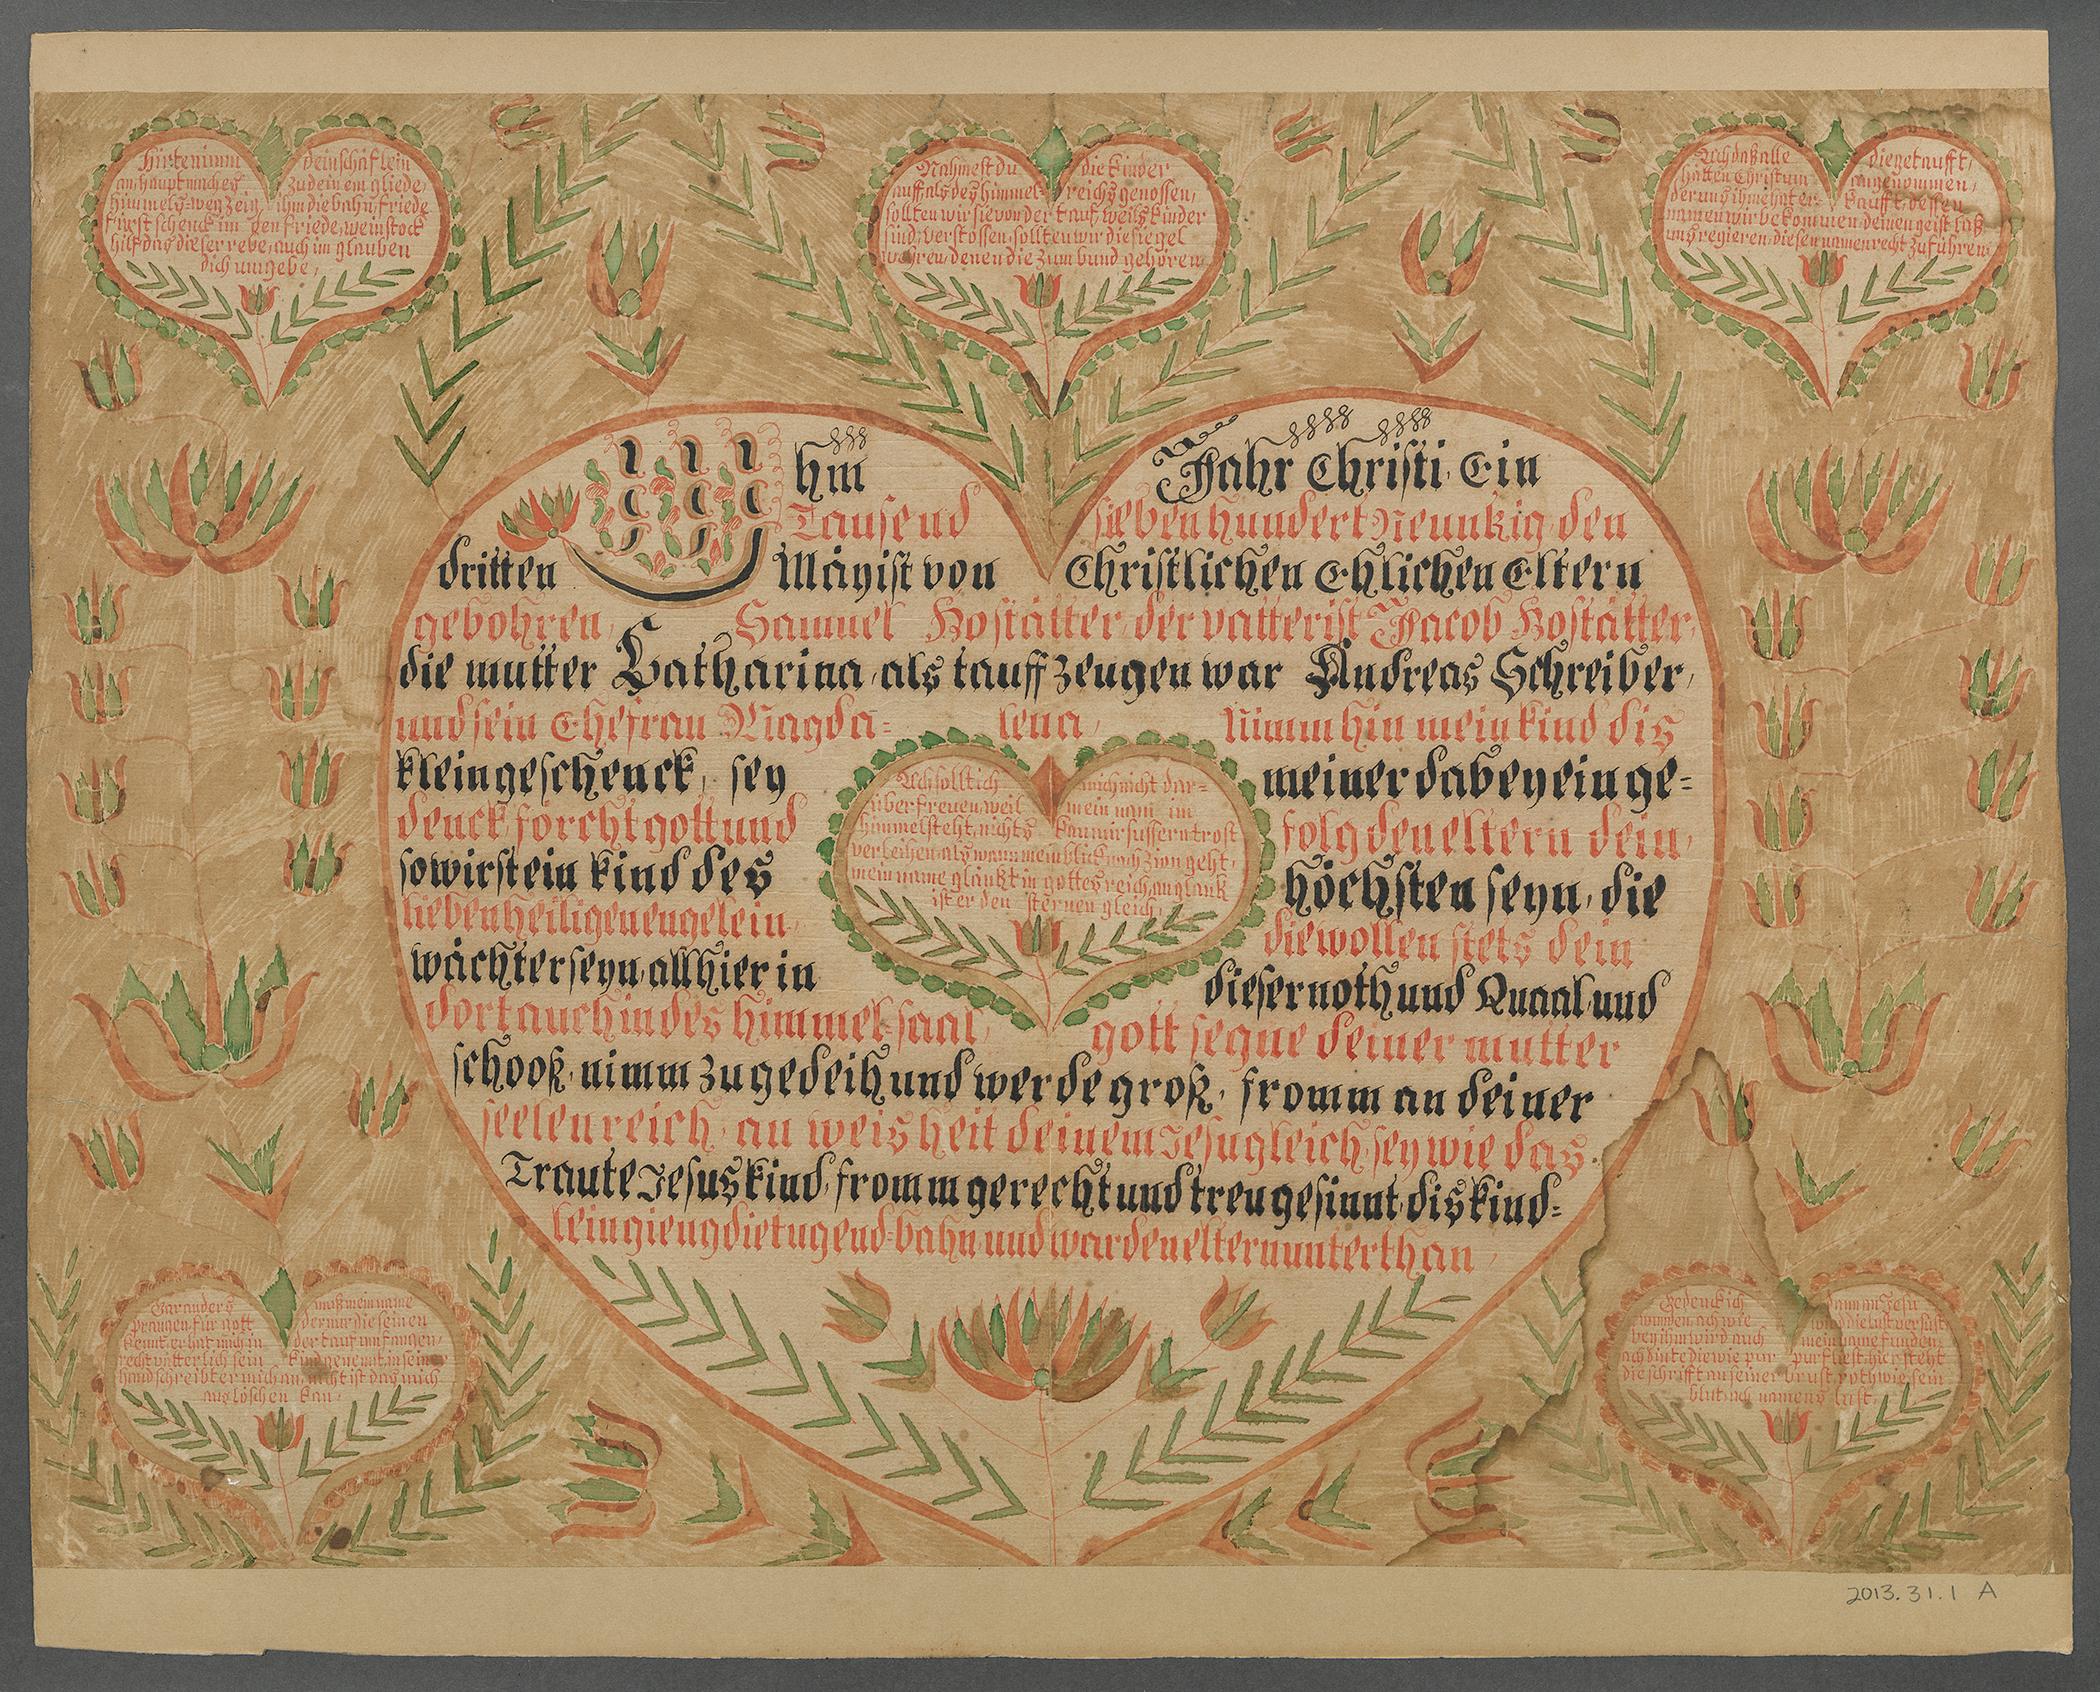 Hirte nimm dein schäflein
an, haupt mach es zu deinem gliede,
himmels-weg zeig ihm die bahn, friede
fürst schenck im den friede, weinstock
hilf das dieser rebe, auch im glauben
dich umgebe,
Nahmest du die kinder
auff als des himmel- reichs genossen,
sollten wir sie von der tauf, weils kinder
sind, verstossen, sollten wir die siegel
wehren, denen die zum bund gehören,
Ach daß alle die getaufft,
hätten Christum angenommen,
der uns ihm erkaufft, dessen
namen wir bekommen, deinen geist laß
uns regieren, diesen namen recht zu führen,
Ihm Jahr Christi, Ein
Tausend sieben hundert Neunkig, den
dritten Mäy ist von Christlichen Ehlichen Eltern
gebohren, Samuel Hostätter, der vatter ist Jacob Hostätter,
die mutter Catharina, als tauff zeugen war Andreas Schreiber,
und sein Ehefrau Magda= lena, Nimm hin mein kind dis
klein geschenck, sey meiner dabey ein ge=
denck, förcht gott und folg den eltern dein,
so wirst ein kind des höchsten seyn, die
lieben heiligen engelein, die wollen stets dein
wächter seyn, allhier in dieser noth und Quaal und
dort auch in des himmel-saal, gott segne deiner mutter
schooß, nimm zu gedeih und werde groß, fromm an deiner
seelen reich, an weisheit deinem Jesu gleich, sey wie das
Traute Jesus kind, fromm gerecht und treu gesinnt, dis kind=
lein gieng die tugend-bahn, und war den eltern unterthan,
Ach sollt ich mich nicht dar=
über freuen, weil mein nam im
himmel steht, nichts kan mir süssern trost
verleihen, als wann mein blick nach Zion geht,
mein name gläntzt in gottes reich, an glantz
ist er den sternen gleich,
Gar anders muß mein name
prangen, für gott der mir die seinen
kennt, er hat mich in der tauf umfangen,
recht vätterlich sein kind genennt, in seiner
hand schreibt er mich an, nicht ist das mich
auslöschen kan,
Gedenck ich dann an Jesu
wunden, ach wie wird die lust versüst
bey ihm wird auch mein name funden,
ach dinte die wie pur pur fliest, hier steht
die schrifft an seiner brust, roth wie sein
blut, ach namens lust,
2013.31.1 A